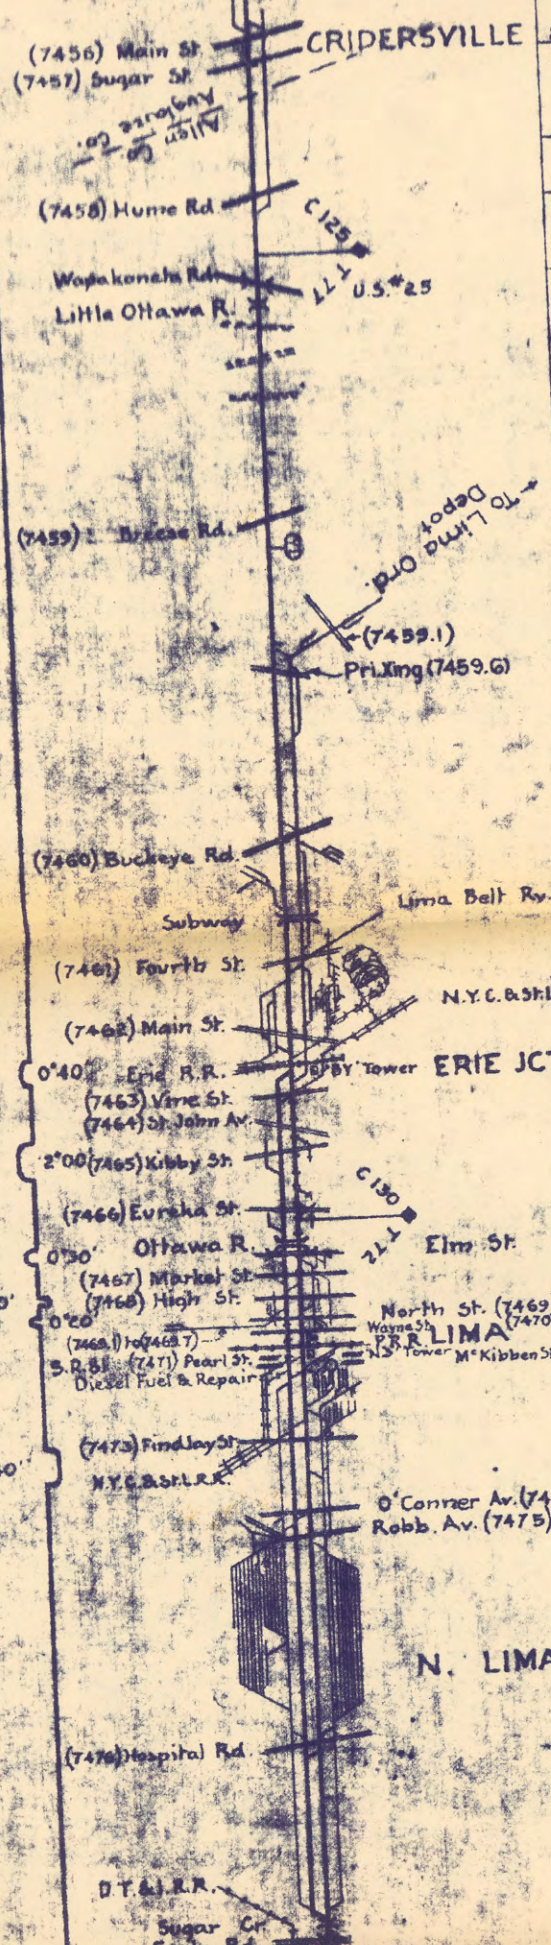 (7456) Main St.
CRIDERSVILLE
(7457) Sugar St.
Allen Co.
Auglaize Co.
(7458) Hume Rd.
C 125
T 77
U.S.#25
Wapakoneta Rd.
Little Ottawa R.
(7459) Breese Rd.
← To Lima Ord.
Depot
(7459.1)
Pri. Xing (7459.6)
(7460) Buckeye Rd.
Lima Belt Ry.
Subway
(7461) Fourth St.
N.Y.C. & St.L
(7462) Main St.
0°40' Erie R.R.
Tower ERIE JCT
(7463) Vine St.
(7464) St. John Av.
2°00' (7465) Kibby St.
C 130
T 72
(7466) Eureka St.
Elm St.
0°30' Ottawa R.
(7467) Market St.
(7468) High St.
0°20'
North St. (7469
Wayne St. (7470
(7469.1) to (7469.7)
P.R.R. LIMA
NS Tower McKibben St
(7471) Pearl St.
Diesel Fuel & Repair
(7473) Findlay St.
N.Y.C. & St.L.R.R.
O'Conner Av. (74
Robb. Av. (7475)
N. LIMA
(7476) Hospital Rd.
D.T. & I.R.R.
Sugar Cr.
Rd.